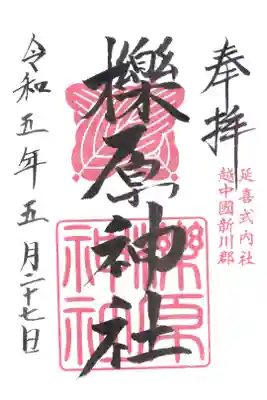 奉拝
延喜式内社
越中國新川郡
櫟原神社
櫟原神社
令和五年五月二十七日